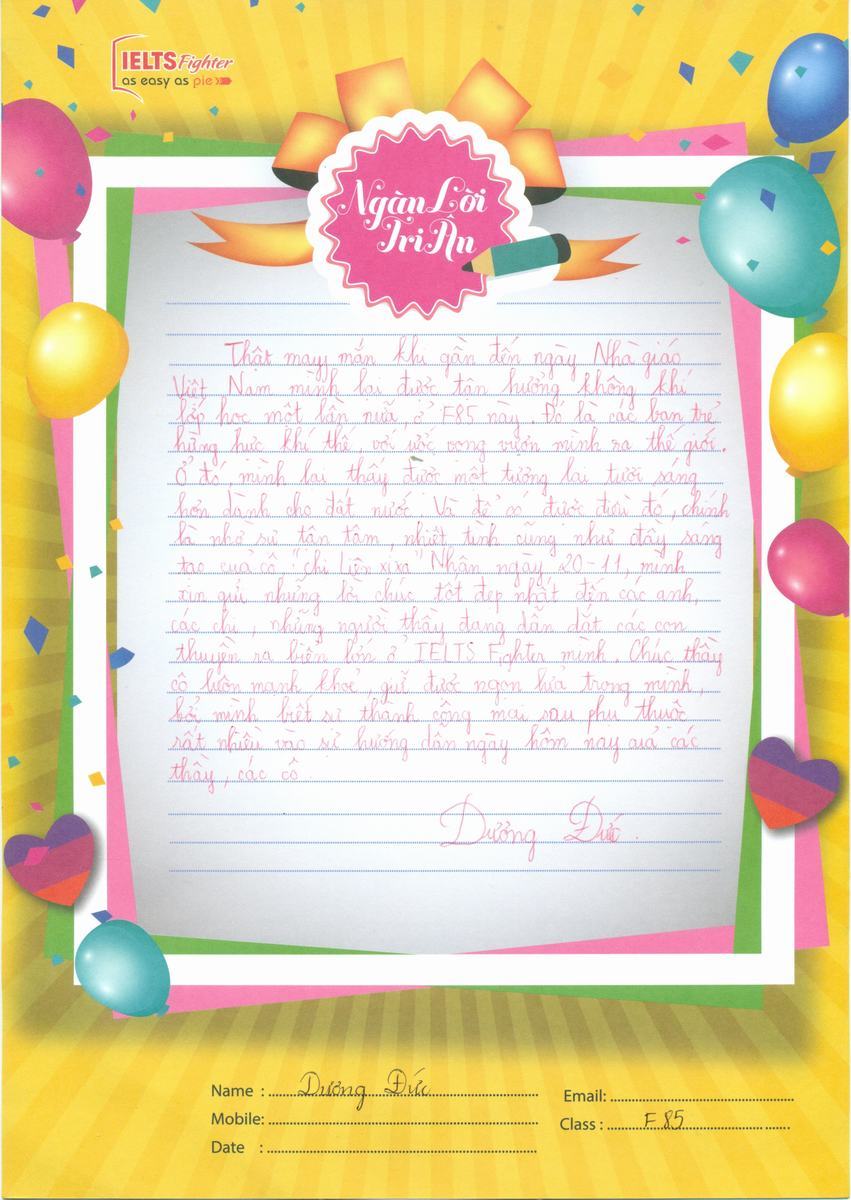 IELTS Fighter
as easy as pie
Ngàn Lời
Tri Ân
Thật may mắn khi gần đến ngày Nhà giáo
Việt Nam mình lại được tận hưởng không khí
lớp học một lần nữa, ở F85 này. Đó là các bạn trẻ
hừng hực khí thế, với ước vọng vươn mình ra thế giới.
Ở đó, mình lại thấy được một tương lai tươi sáng
hơn dành cho đất nước. Và để có được điều đó, chính
là nhờ sự tận tâm, nhiệt tình cũng như đầy sáng
tạo của cô "chị Liên xixo" Nhân ngày 20-11, mình
xin gửi những lời chúc tốt đẹp nhất đến các anh,
các chị, những người thầy đang dẫn dắt các con
thuyền ra biển lớn ở IELTS Fighter mình. Chúc thầy
cô luôn mạnh khoẻ, giữ được ngọn lửa trong mình,
bởi mình biết sự thành công mai sau phụ thuộc
rất nhiều vào sự hướng dẫn ngày hôm nay của các
thầy, các cô
Dương Đức.
Name : Dương Đức
Email:
Mobile:
Class : F85
Date :